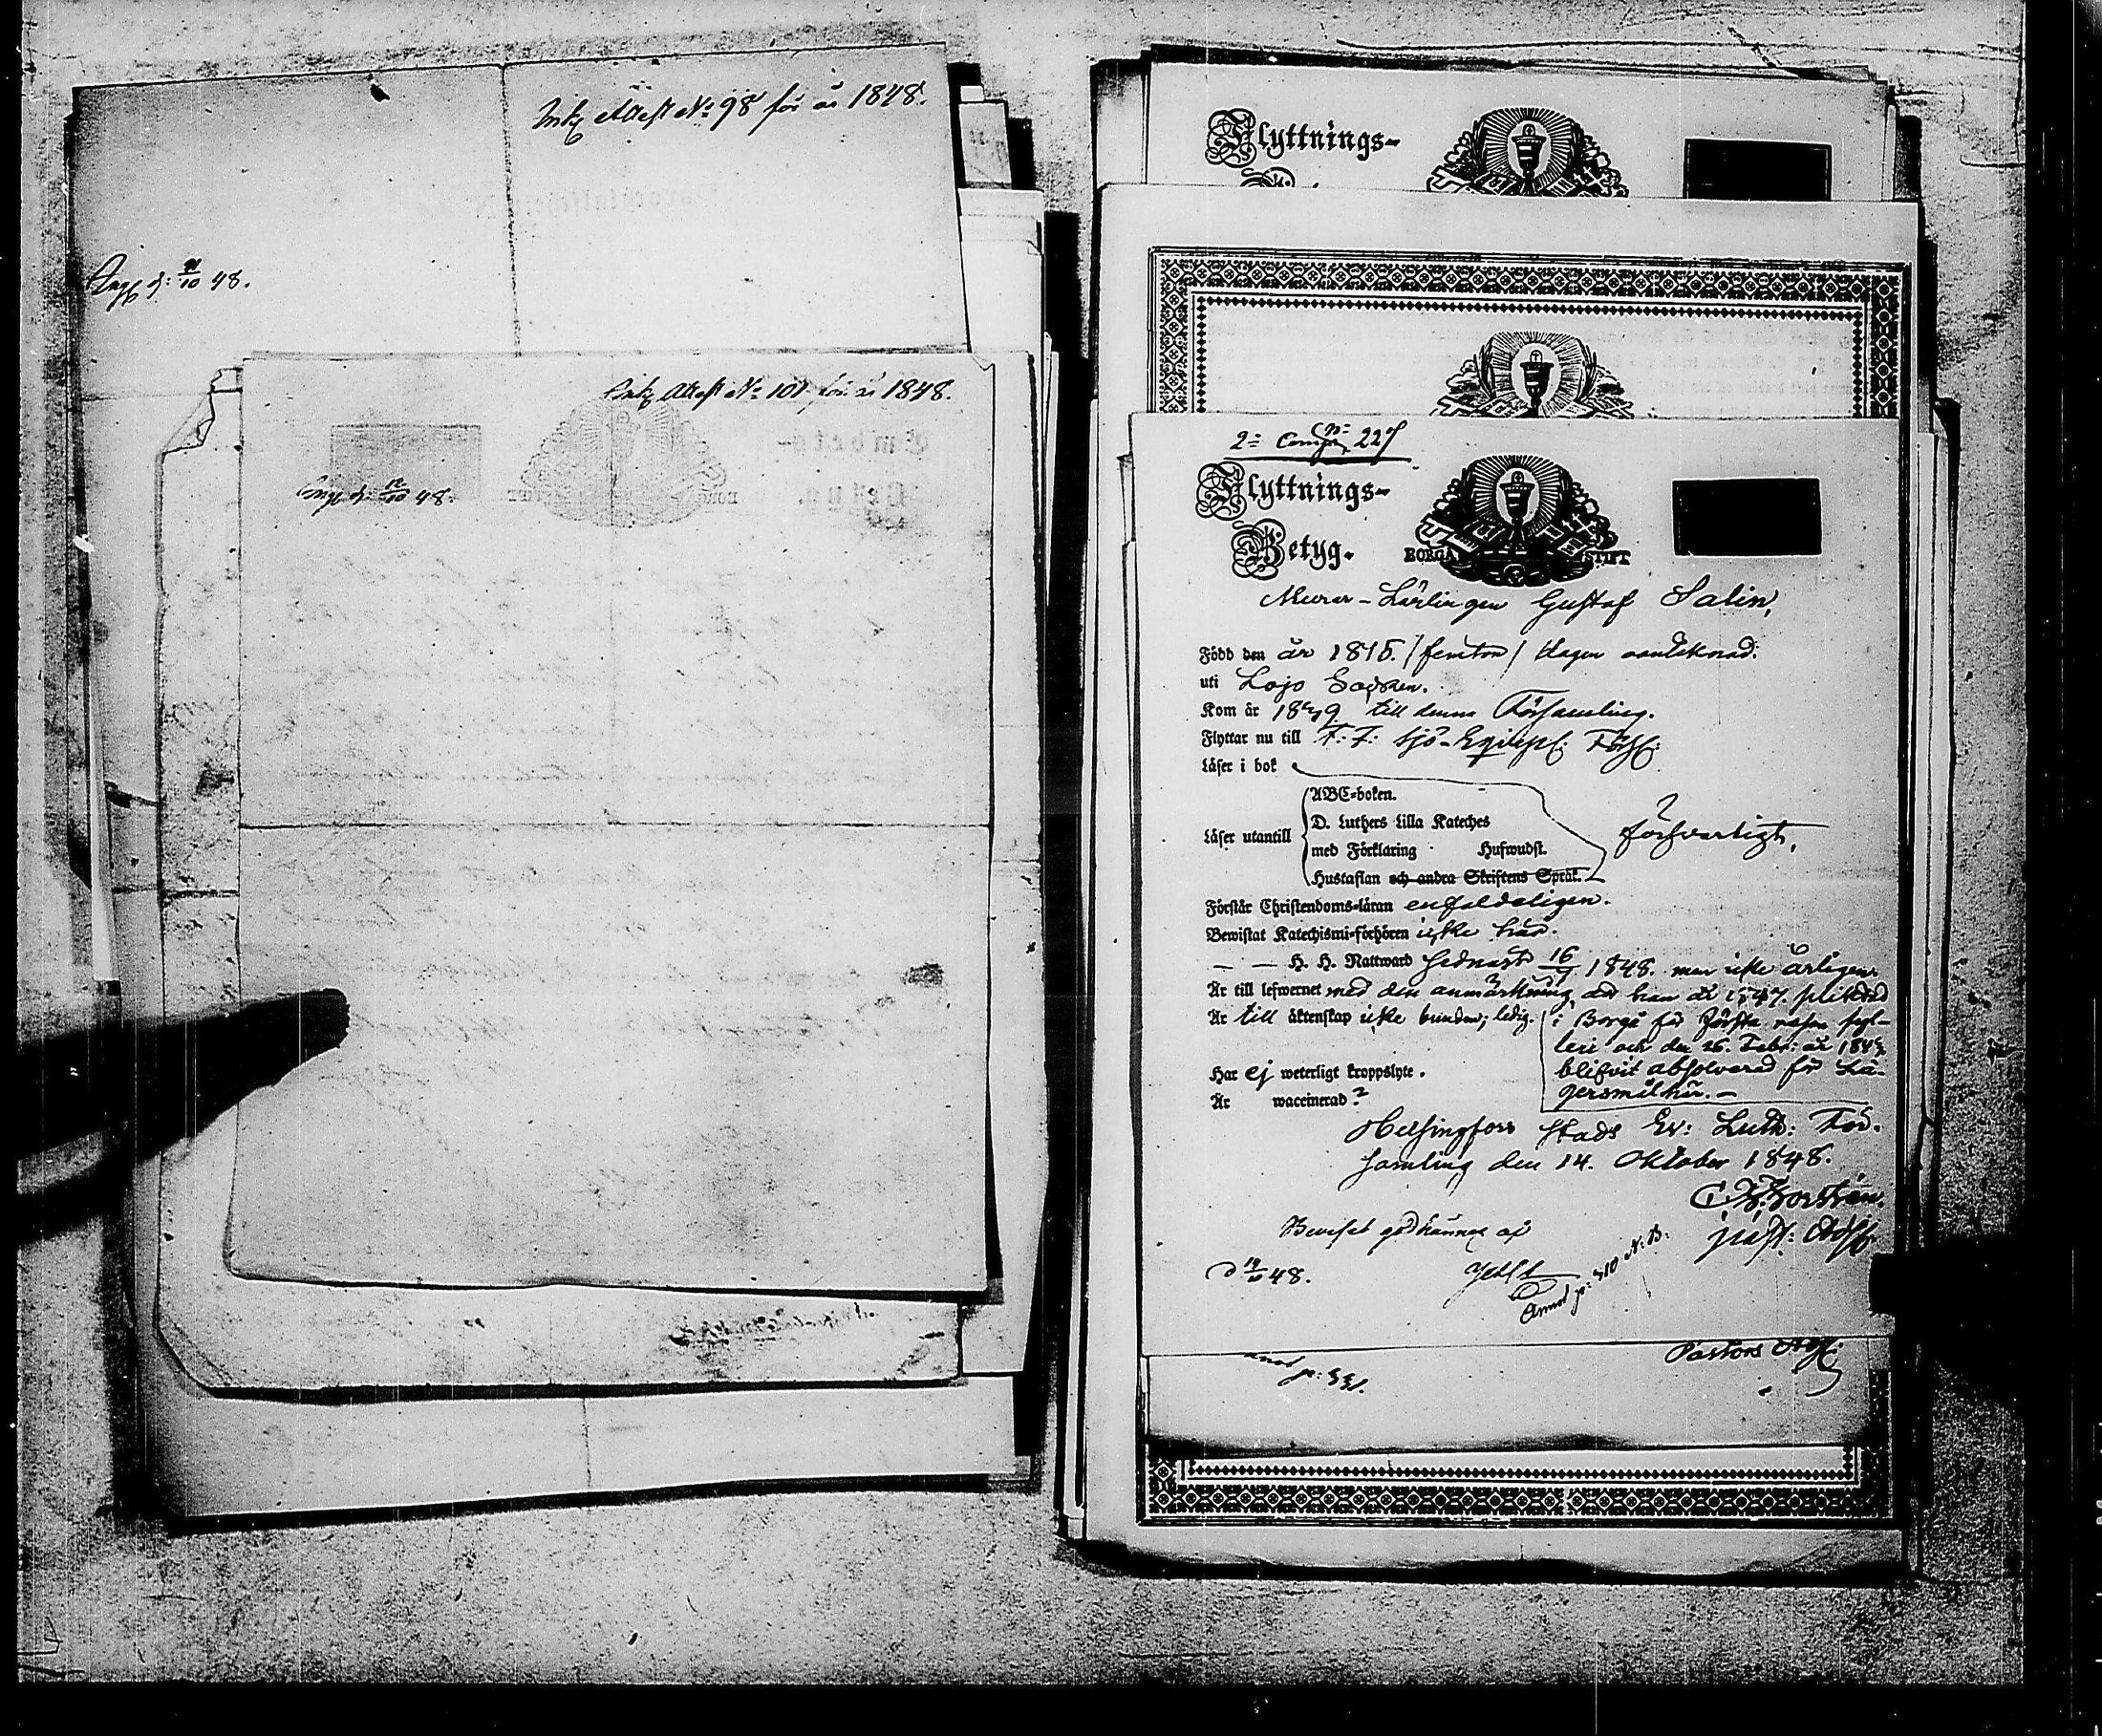 Attest № 98 för år 1848.
d: 10 48.
Attest № 101 för år 1848.
d: 12/10 48.
Flyttnings-
2: Comp: 227
Flyttnings-
Betyg.
BORGÅ STIFT
Murar-Lärlingen Gustaf Salin,
Född den år 1815. / femton / dagen oantecknad.
uti Lojo Socken.
Kom år till denna Församling.
Flyttar nu till F: F: Sjö-Eqvip: Förs:
Läser i bok
ABC-boken.
D. Luthers Lilla Kateches
Läser utantill
försvarligt.
med Förklaring Hufwudst.
Hustaflan och andra Skriftens Språk.
Förstår Christendoms-läran enfaldeligen.
Bewistat Katechismi-förhören icke här.
— — H. H. Nattward sednast 16/7 1848. men icke årligen
Är till lefwernet med den anmärkning att han år 1847. pliktad
Är till äktenskap icke bunden; ledig.
i Borgå för första resan fyl-
leri och den 26. Febr: år
blifvit absolverad för Lä-
gersmål här. —
Har ej weterligt kroppslyte.
Är waccinerad ?
Helsingfors Stads Ev: Luth: För-
samling den 14. Oktober 1848.
C. H. Forström.
Past: Adj.
Beviset godkännes af
d 14/10 48.
Annot p: 410 N. B.
Pastors Adj:
p: 331.